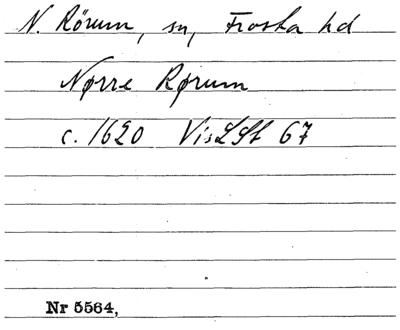 N. Rörum, sn, Frosta hd
Nørre Rørum
c. 1620 VisLSt 67
Nr 5564,